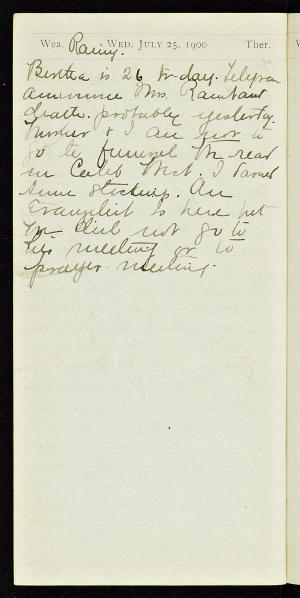 Wea. Rainy. WED. JULY 25, 1900 Ther.
Bertha is 26 to-day. Telegram
announce Mrs. death probably yesterday.
& I are not to
go to funeral. We read
in Caleb West. I darned
some stockings. An
Evangelist is here but
we did not go to
his meeting or to
prayer-meeting.